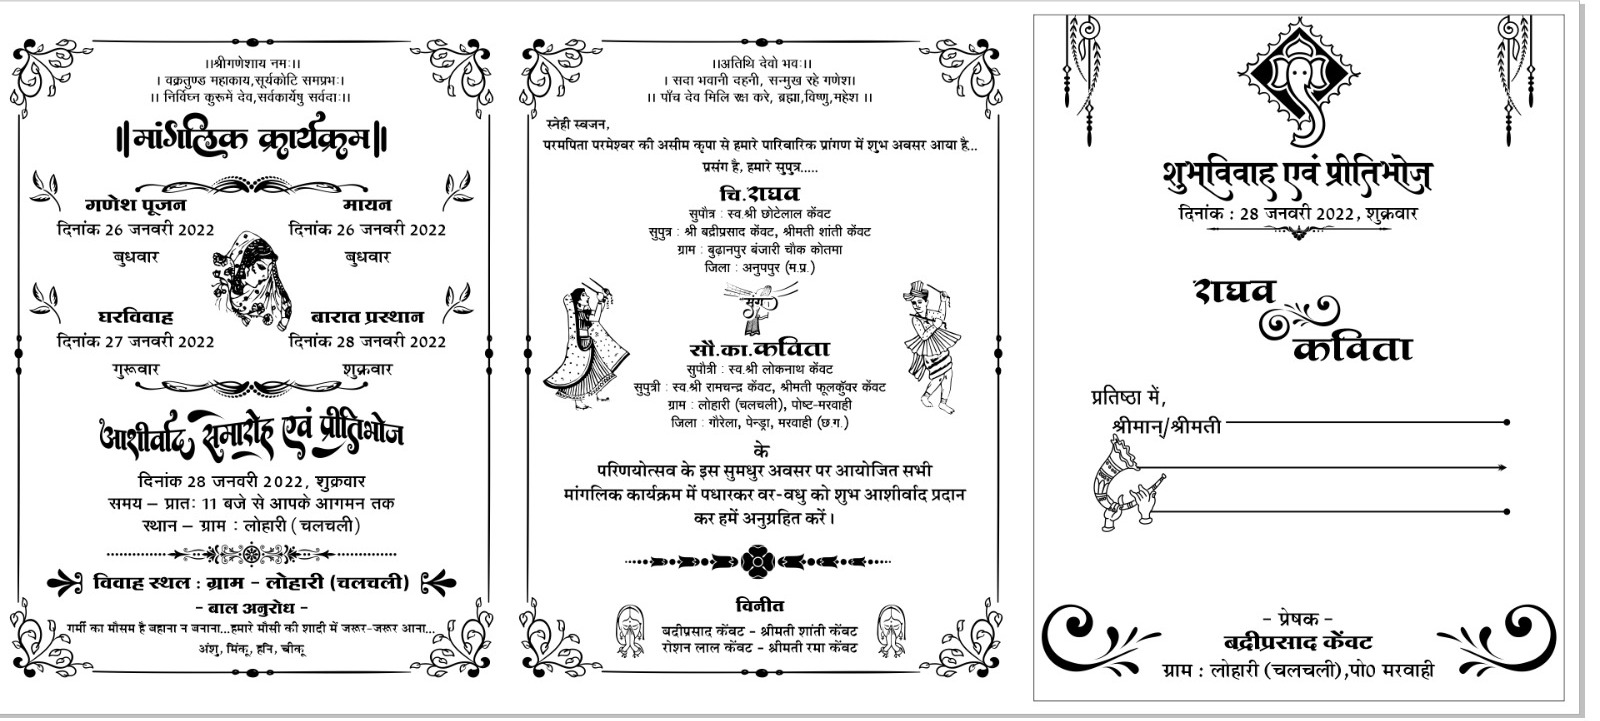 ।।श्रीगणेशाय नमः।।
। वक्रतुण्ड महाकाय,सूर्यकोटि समप्रभः।
।। निर्विघ्न कुरूमे देव,सर्वकार्येषु सर्वदाः।।
||मांगलिक कार्यक्रम||
गणेश पूजन
दिनांक 26 जनवरी 2022
बुधवार
मायन
दिनांक 26 जनवरी 2022
बुधवार
घरविवाह
दिनांक 27 जनवरी 2022
गुरूवार
बारात प्रस्थान
दिनांक 28 जनवरी 2022
शुक्रवार
आशीर्वाद समारोह एवं प्रीतिभोज
दिनांक 28 जनवरी 2022, शुक्रवार
समय – प्रातः 11 बजे से आपके आगमन तक
स्थान – ग्राम : लोहारी (चलचली)
विवाह स्थल : ग्राम - लोहारी (चलचली)
- बाल अनुरोध -
गर्मी का मौसम है बहाना न बनाना...हमारे मौसी की शादी में जरूर-जरूर आना...
अंशु, मिंकू, हनि, चीकू
।।अतिथि देवो भवः।।
। सदा भवानी दहनी, सन्मुख रहे गणेश।
।। पाँच देव मिलि रक्ष करे, ब्रह्मा,विष्णु,महेश ।।
स्नेही स्वजन,
परमपिता परमेश्वर की असीम कृपा से हमारे पारिवारिक प्रांगण में शुभ अवसर आया है...
प्रसंग है, हमारे सुपुत्र.....
चि.राघव
सुपौत्र : स्व.श्री छोटेलाल केंवट
सुपुत्र : श्री बद्रीप्रसाद केंवट, श्रीमती शांती केंवट
ग्राम : बुढ़ानपुर बंजारी चौक कोतमा
जिला : अनुपपुर (म.प्र.)
संग
सौ.का.कविता
सुपौत्री : स्व.श्री लोकनाथ केंवट
सुपुत्री : स्व.श्री रामचन्द्र केंवट, श्रीमती फूलकुँवर केंवट
ग्राम : लोहारी (चलचली), पोष्ट-मरवाही
जिला : गौरेला, पेन्ड्रा, मरवाही (छ.ग.)
के
परिणयोत्सव के इस सुमधुर अवसर पर आयोजित सभी
मांगलिक कार्यक्रम में पधारकर वर-वधु को शुभ आशीर्वाद प्रदान
कर हमें अनुग्रहित करें।
विनीत
बद्रीप्रसाद केंवट - श्रीमती शांती केंवट
रोशन लाल केंवट - श्रीमती रमा केंवट
शुभविवाह एवं प्रीतिभोज
दिनांक : 28 जनवरी 2022, शुक्रवार
राघव
कविता
प्रतिष्ठा में,
श्रीमान्/श्रीमती
- प्रेषक -
बद्रीप्रसाद केंवट
ग्राम : लोहारी (चलचली),पो0 मरवाही